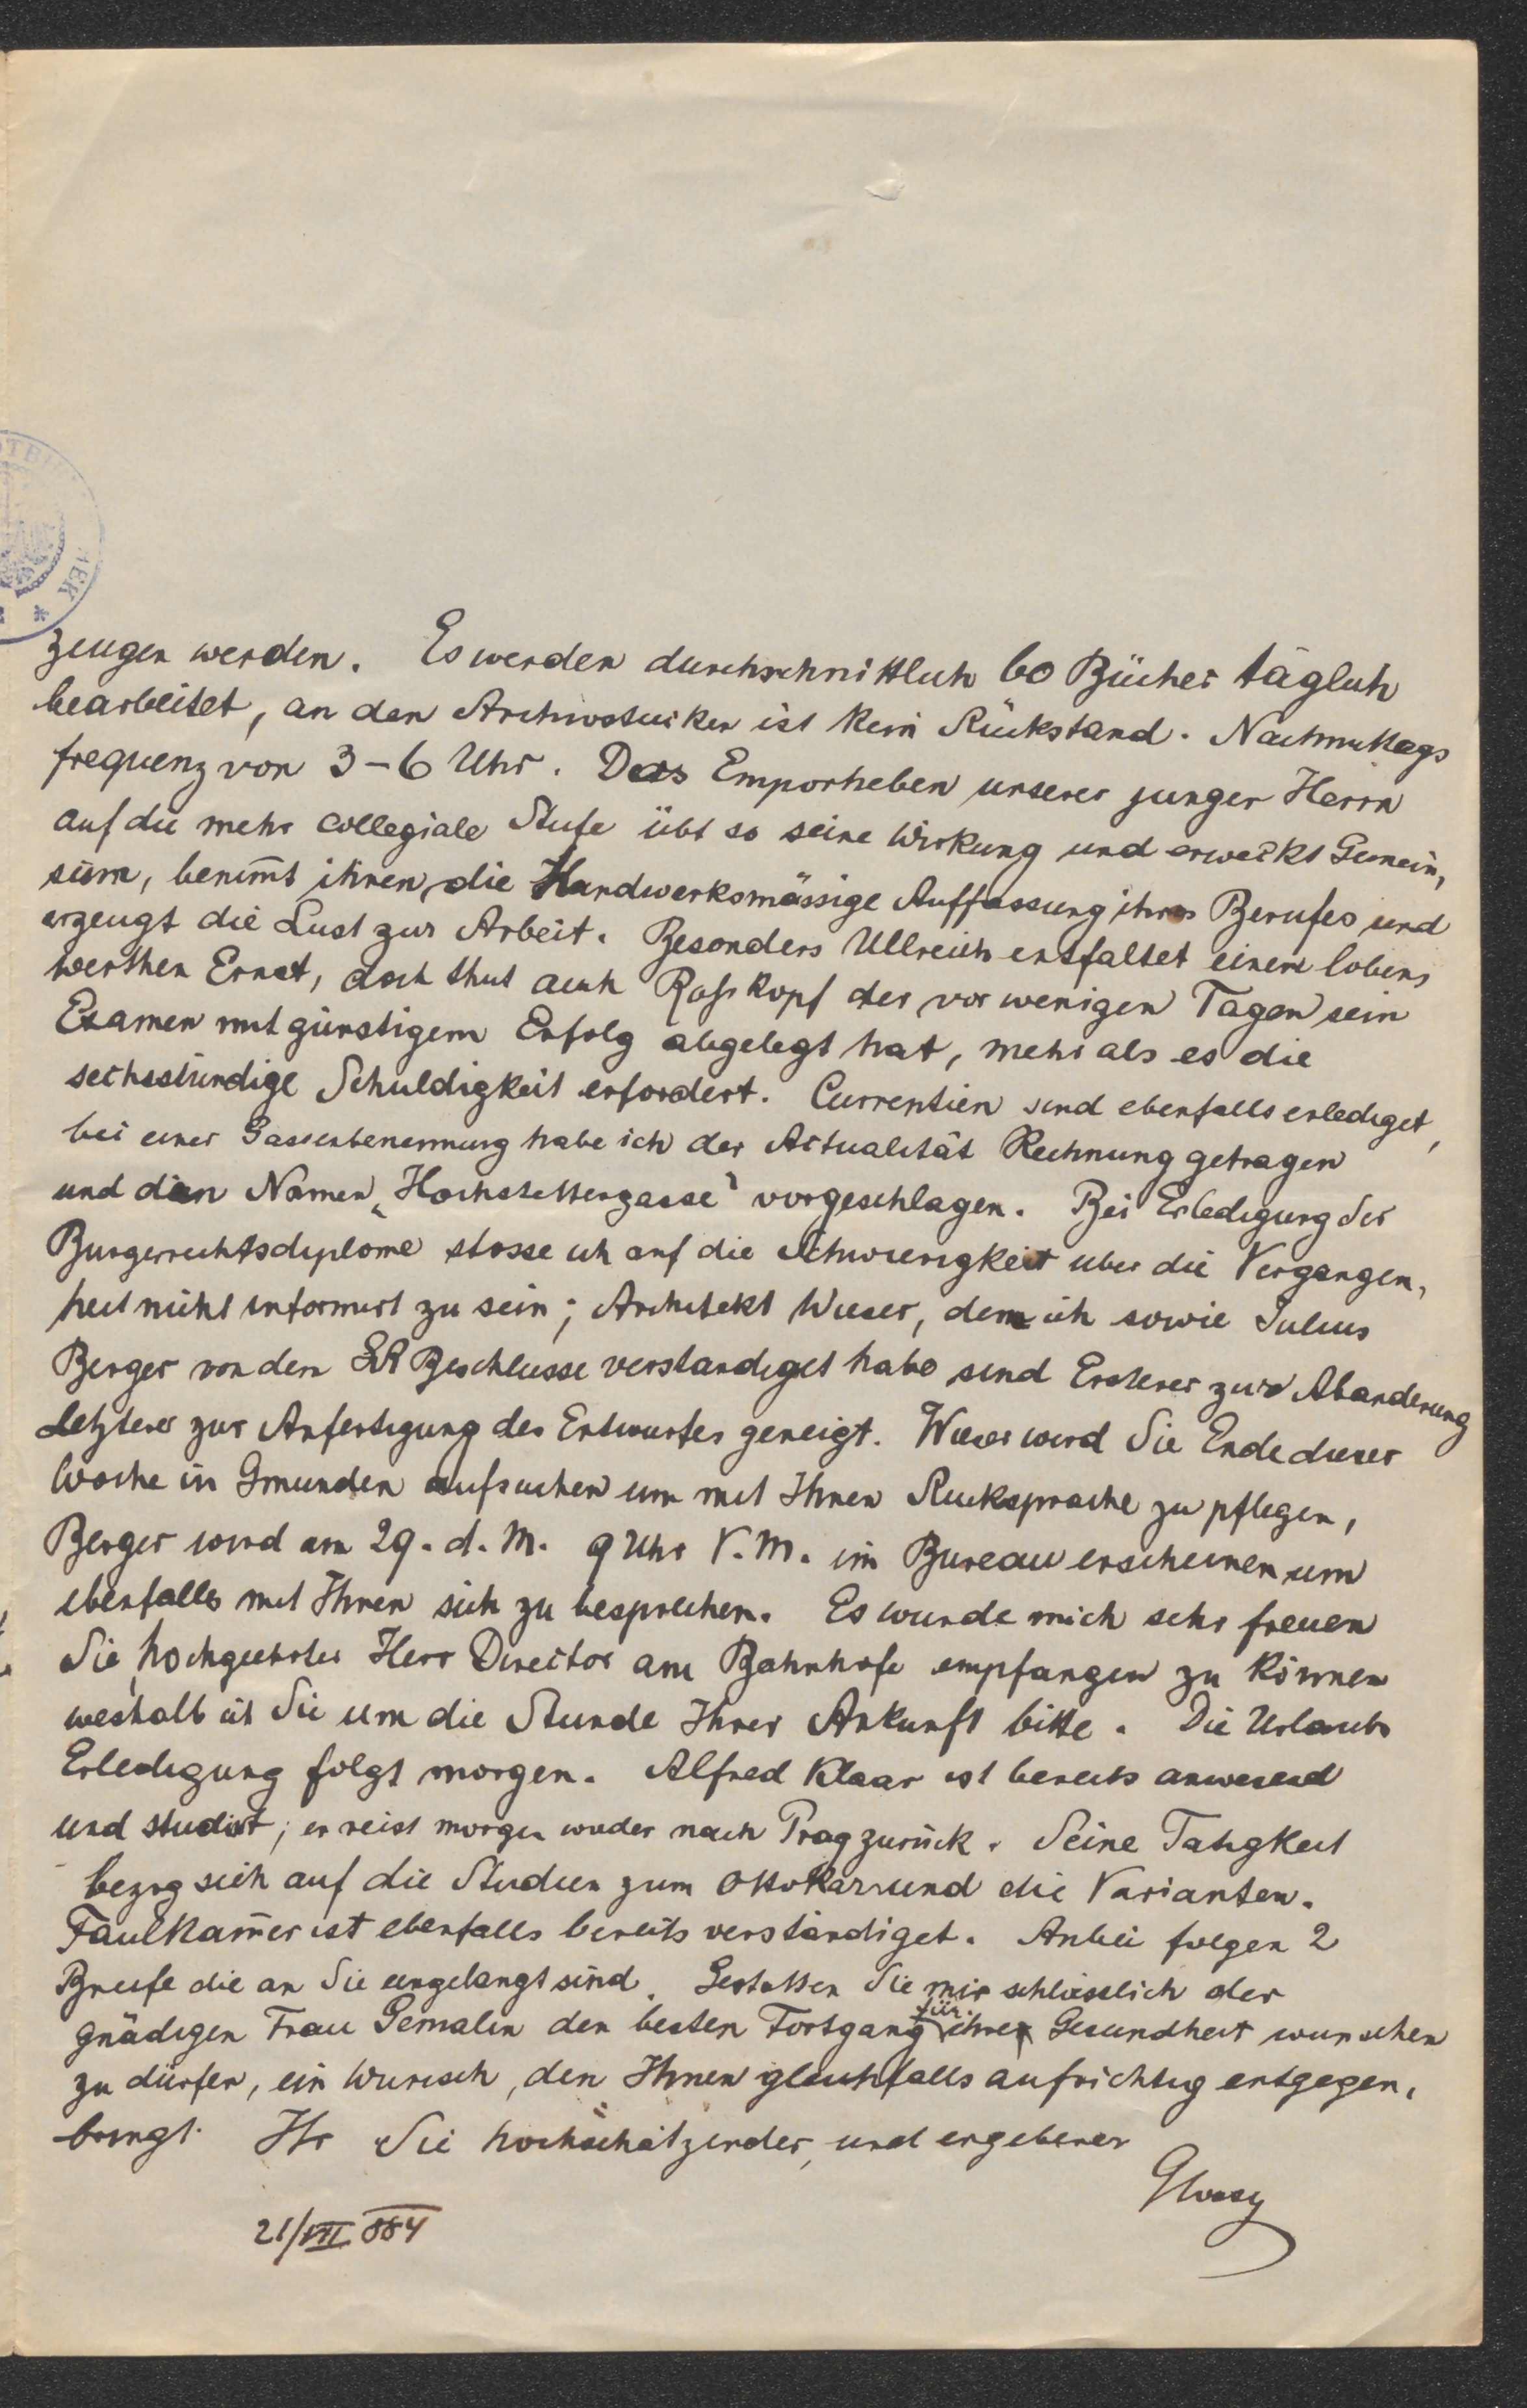 zeugen werden. Es werden durchschnittlich 60 Bücher täglich
bearbeitet, an den Archivstücken ist kein Rückstand. Nachmittags
frequenz von 3-6 Uhr. Das Emporheben unserer junger Herrn
auf die mehr collegiale Stufe übt so seine Wirkung und erweckt Gemein,
sinn, benim̄t ihnen die Handwerksmässige Auffassung ihres Berufes und
erzeugt die Lust zur Arbeit. Besonders Ullreich entfaltet einen lobens
werthen Ernst, doch thut auch Rosskopf der vor wenigen Tagen sein
Examen mit günstigem Erfolg abgelegt hat, mehr als es die
sechsstündige Schuldigkeit erfordert. Currentien sind ebenfalls erlediget,
bei einer Gassenbenennung habe ich der Actualität Rechnung getragen
und den Namen „Hochstettergasse“ vorgeschlagen. Bei Erledigung der
Burgerrechtsdiplome stosse ich auf die Schwierigkeit über die Vergangen,
heit nicht informirt zu sein; Architekt Wieser, dem ich sowie Julius
Berger von dem SR Beschlusse verständiget habe sind Ersterer zur Abänderung
Letzterer zur Anfertigung des Entwurfes geneigt. Wieser wird Sie Ende dieser
Woche in Gmunden aufsuchen um mit Ihnen Rucksprache zu pflegen,
Berger wird am 29. d. M. 9 Uhr V. M. im Bureau erscheinen um
ebenfalls mit Ihnen sich zu besprechen. Es wurde mich sehr freuen
Sie, hochgeehrter Herr Director am Bahnhofe empfangen zu können
weshalb ich Sie um die Stunde Ihrer Ankunft bitte. Die Urlaubs
Erledigung folgt morgen. Alfred Klaar ist bereits anwesend
und studirt; er reist morgen wieder nach Prag zurück. Seine Tätigkeit
bezog sich auf die Studien zum Ottokar und die Varianten.
Faulkam̄er ist ebenfalls bereits verständiget. Anbei folgen 2
Briefe die an Sie eingelangt sind. Gestatten Sie mir schliesslich der
gnädigen Frau Gemalin den besten Fortgang für ihre Gesundheit wunschen
zu dürfen, ein Wunsch, den Ihnen gleichfalls aufrichtig entgegen,
bringt Ihr Sie hochschätzender, und ergebener
Glossy
21/VII 884